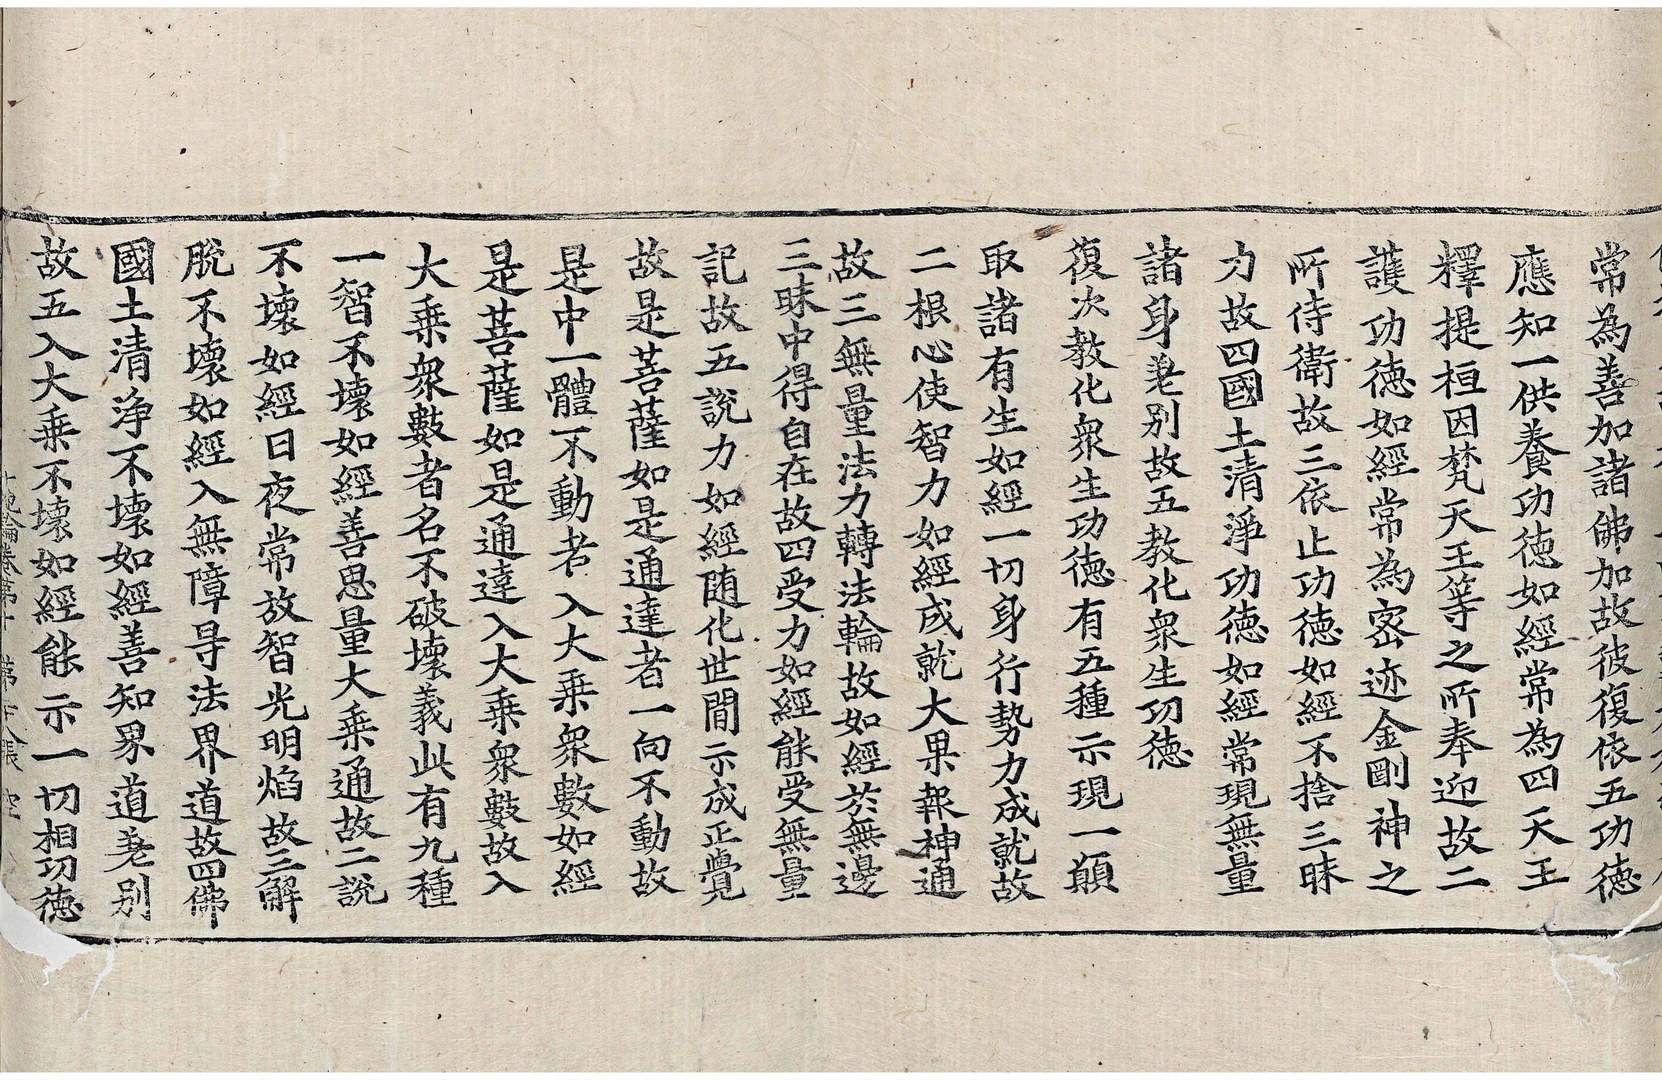 常為善加諸佛加故彼復依五功德
應知一供養功德如經常為四天王
釋提桓因梵天王等之所奉迎故二
護功德如經常為密迹金剛神之
所侍衛故三依止功德如經不捨三昧
力故四國土清淨功德如經常現無量
諸身差別故五教化衆生功德
復次教化衆生功德有五種示現一願
取諸有生如經一切身行勢力成就故
二根心使智力如經成就大果報神通
故三無量法力轉法輪故如經於無邊
三昧中得自在故四受力如經能受無量
記故五說力如經随化世間示成正覺
故是菩薩如是通達者一向不動故
是中一體不動者入大乘衆數如經
是菩薩如是通達入大乘衆數故入
大乘衆數者名不破壞義此有九種
一智不壞如經善思量大乘通故二說
不壞如經日夜常放智光明焰故三解
脫不壞如經入無障㝵法界道故四佛
國土清淨不壞如經善知界道差別
故五入大乘不壞如經能示一切相功德
地論卷第十 第 張 空